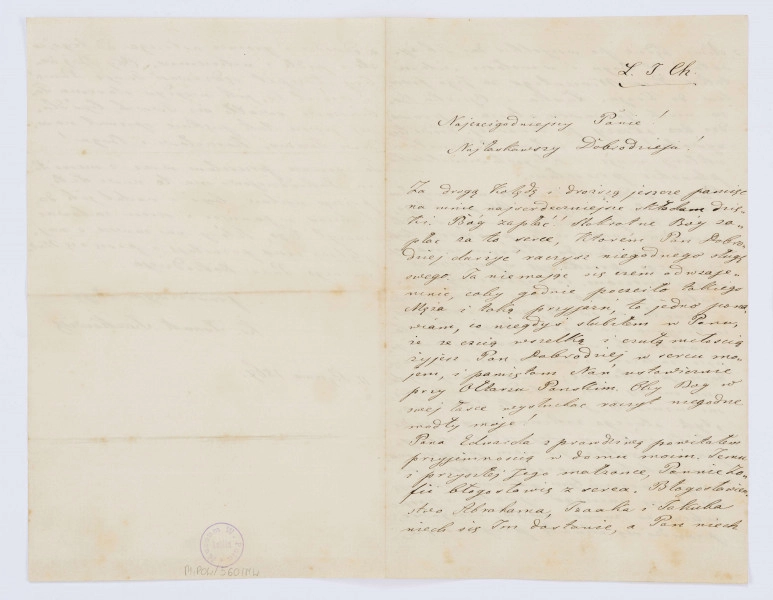 L. J. Ch.
Najczcigodniejszy Panie!
Najłaskawszy Dobrodzieju!
Za drogą kolędę i droższą jeszcze pamięć
na mnie najserdeczniejsze składam dzię-
ki. Bóg zapłać! Stokrotne Bóg za-
płać za to serce, którém Pan Dobro-
dziej darzyć raczysz niegodnego sługę
swego. Ja nie mając się czem odwzaje-
mnić, coby godnie poczciło takiego
Męża i taką przyjaźń, to jedno pona-
wiam, co niegdyś ślubiłem w Panu,
iż ze czcią wszelką i czułą miłością
żyjesz Pan Dobrodziej w sercu mo-
jem, i pamiętam Nań ustawicznie
przy Ołtarzu Pańskim. Oby Bóg w
swej łasce wysłuchać raczył niegodne
modły moje!
Pana Edwarda z prawdziwą powitałem
przyjemnością w domu moim. Jemu
i przyszłej Jego małżonce, Pannie Zo-
fii błogosławię z serca. Błogosławień-
stwo Abrahama, Izaaka i Jakuba
niech się Im dostanie, a Pan niech